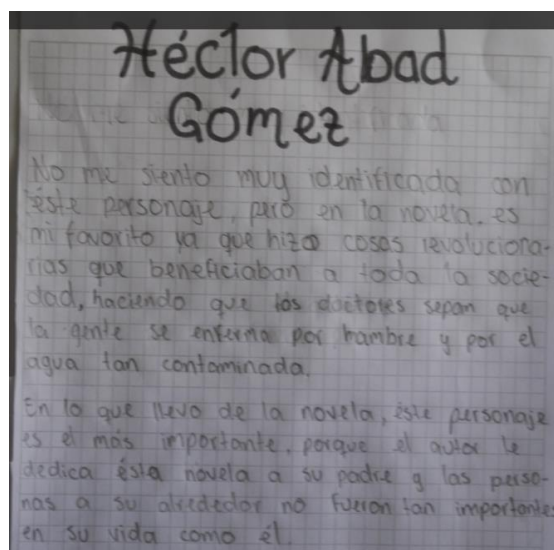 Héctor Abad
Gómez
No me siento muy identificada con
éste personaje, pero en la novela. es
mi favorito ya que hizo cosas revoluciona-
rias que beneficiaban a toda la socie-
dad, haciendo que los doctores sepan que
la gente se enferma por hambre y por el
agua tan contaminada.
En lo que llevo de la novela, éste personaje
es el más importante, porque el autor le
dedica ésta novela a su padre y las perso-
nas a su alrededor no fueron tan importantes
en su vida como él.